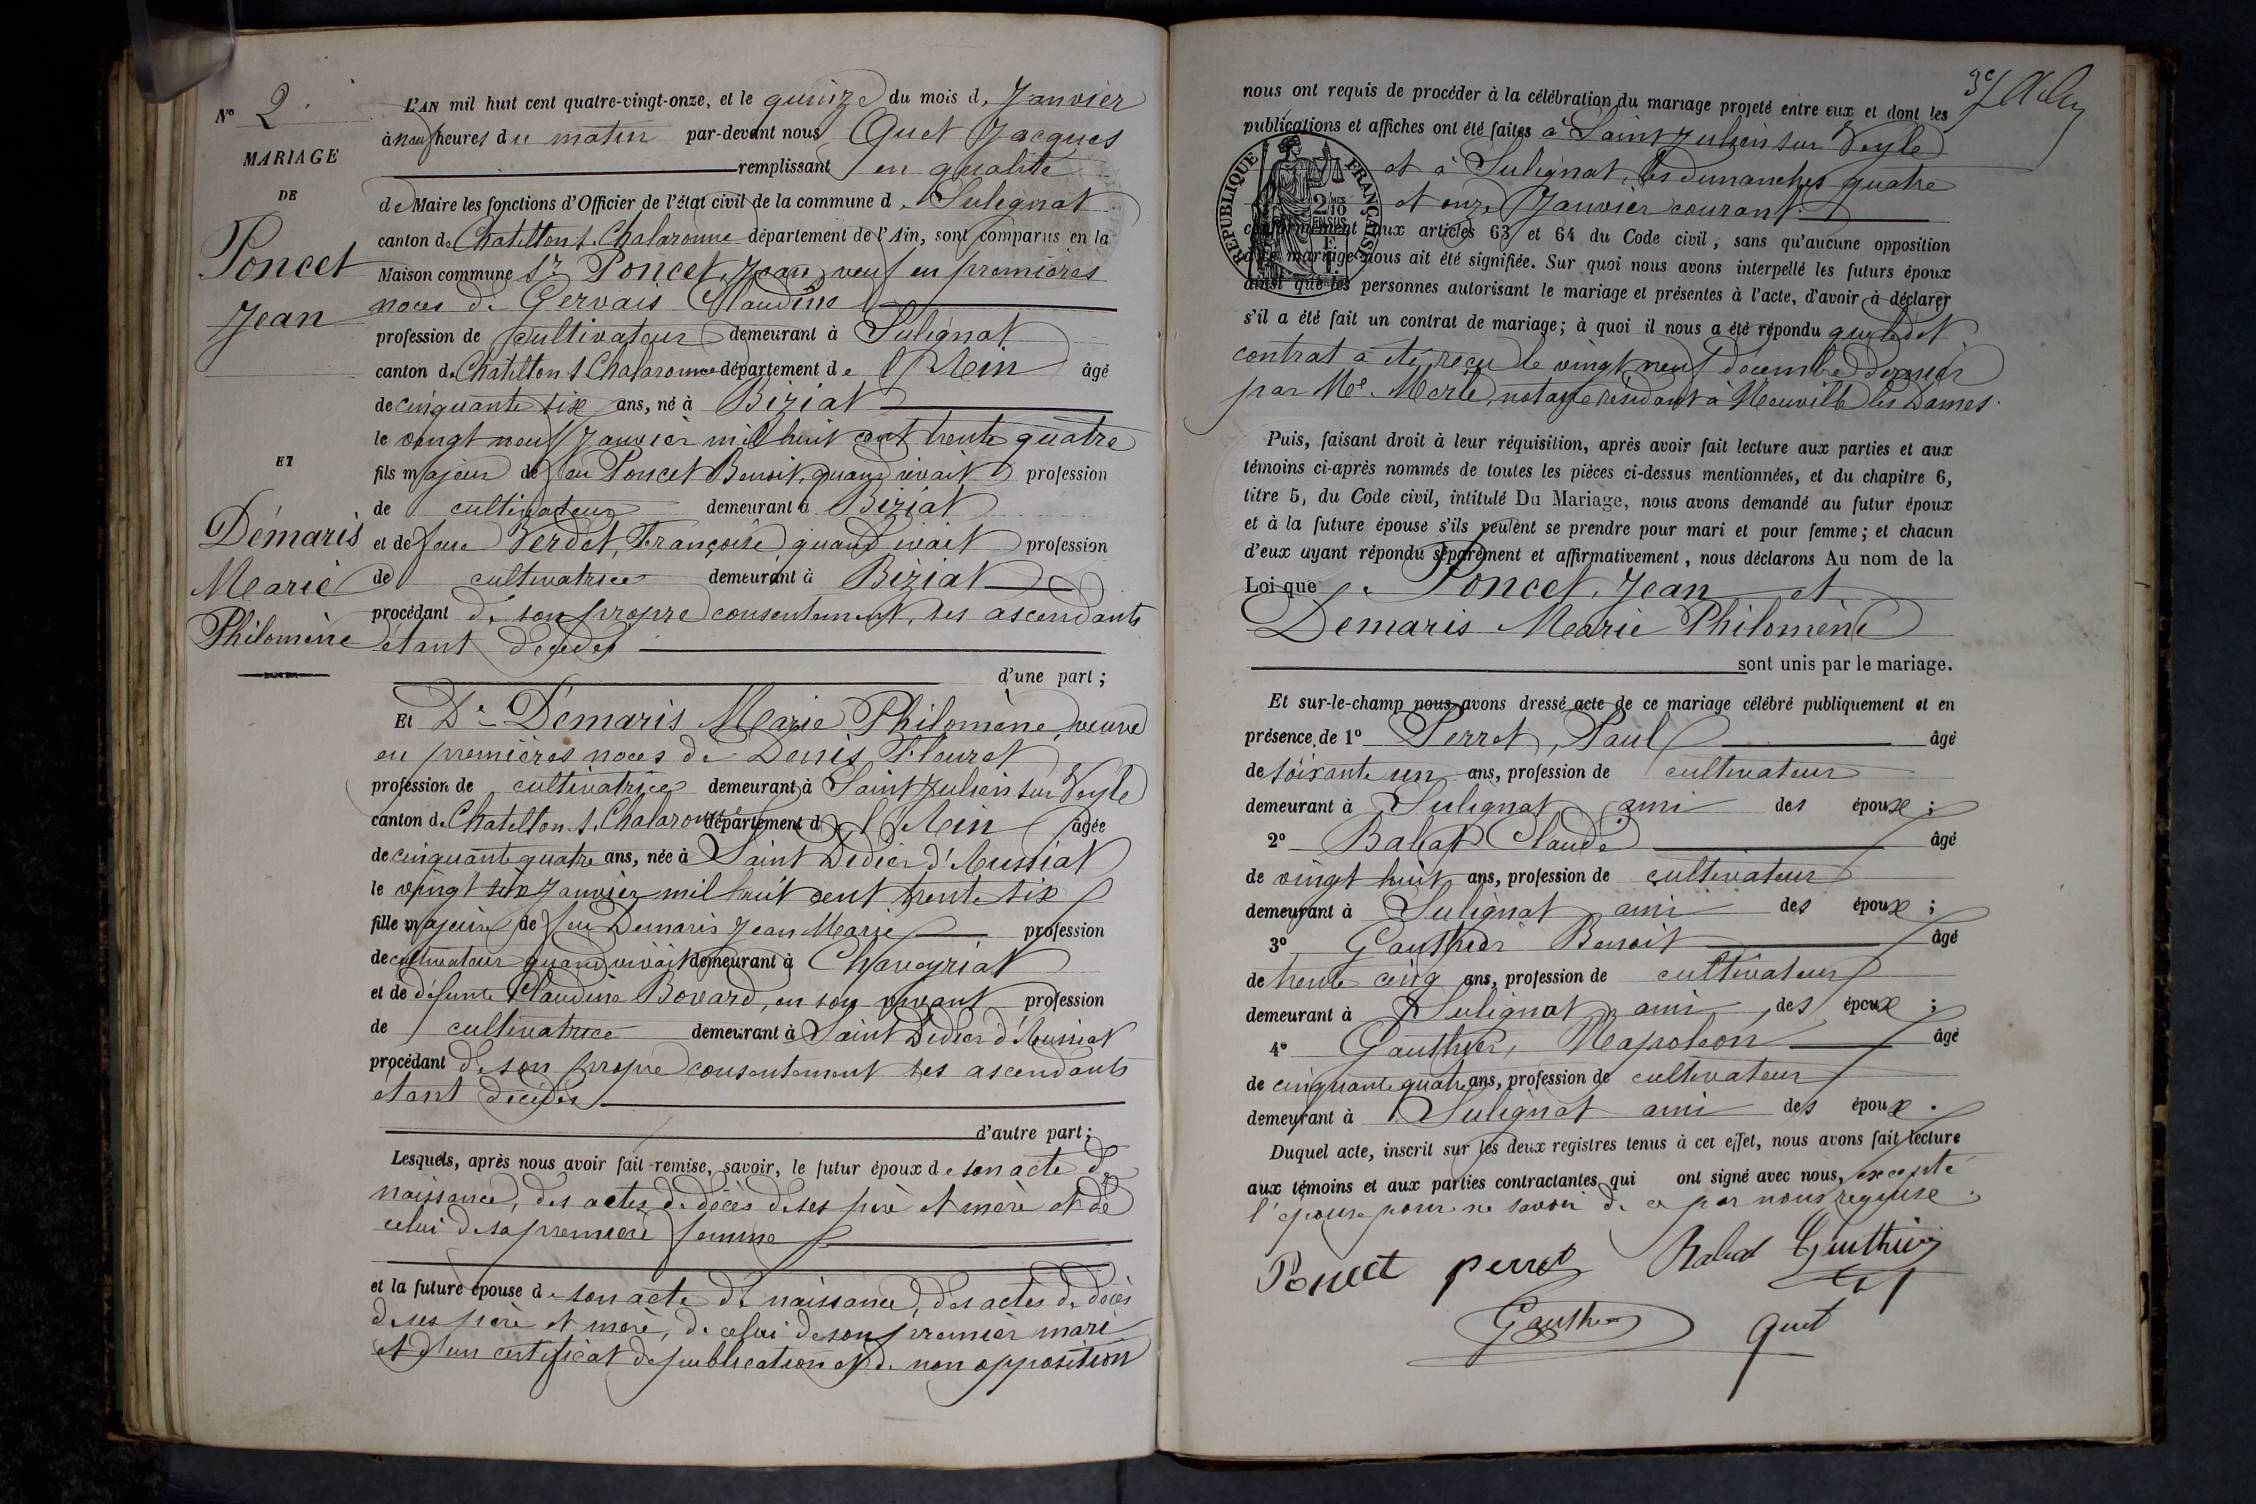 N° 2
MARIAGE
DE
Poncet
Jean
ET
Démaris
Marie
Philomène
L'AN mil huit cent quatre-vingt-onze, et le quinze du mois de Janvier
à neuf heures du matin par-devant nous Quet Jacques
remplissant en qualité
de Maire les fonctions d'Officier de l'état civil de la commune de Sulignat
canton de Chatillon s. Chalaronne département de l'Ain, sont comparus en la
Maison commune Sr Poncet, Jean, veuf en premières
noces de Gervais Claudine
profession de cultivateur demeurant à Sulignat
canton de Chatillon s Chalaronne département de l'Ain âgé
de cinquante six ans, né à Biziat
le vingt neuf Janvier mil huit cent trente quatre
fils majeur de feu Poncet Benoit, quand vivait profession
de cultivateur demeurant à Biziat
et de feue Verdet, Françoise, quand vivait profession
de cultivatrice demeurant à Biziat
procédant de son propre consentement, ses ascendants
étant décédés
d'une part ;
Et De Démaris Marie Philomène, veuve
en premières noces de Denis Fleuret
profession de cultivatrice demeurant à Saint Julien sur Veyle
canton de Chatillon s. Chalaronne département de l'Ain âgée
de cinquante quatre ans, née à Saint Didier d'Aussiat
le vingt six Janvier mil huit cent trente six
fille majeure de feu Demaris Jean Marie profession
de cultivateur quand vivait demeurant à Chaveyriat
et de défunte Claudine Bovard, en son vivant profession
de cultivatrice demeurant à Saint Didier d'Aussiat
procédant de son propre consentement ses ascendants
étant décédés
d'autre part ;
Lesquels, après nous avoir fait remise, savoir, le futur époux de son acte de
naissance, des actes de décès de ses père et mère et de
celui de sa première femme
et la future épouse de son acte de naissance, des actes de décès
de ses père et mère, de celui de son premier mari
et d'un certificat de publication et de non opposition
nous ont requis de procéder à la célébration du mariage projeté entre eux et dont les
publications et affiches ont été faites à Saint Julien sur Veyle
et à Sulignat, les dimanches quatre
et onze Janvier courant
RÉPUBLIQUE FRANÇAISE
2/10 EN SUS
conformément aux articles 63 et 64 du Code civil, sans qu'aucune opposition
audit mariage nous ait été signifiée. Sur quoi nous avons interpellé les futurs époux
ainsi que les personnes autorisant le mariage et présentes à l'acte, d'avoir à déclarer
s'il a été fait un contrat de mariage ; à quoi il nous a été répondu que ledit
contrat a été reçu le vingt neuf décembre dernier
par Me Merle, notaire résidant à Neuville les Dames.
Puis, faisant droit à leur réquisition, après avoir fait lecture aux parties et aux
témoins ci-après nommés de toutes les pièces ci-dessus mentionnées, et du chapitre 6,
titre 5, du Code civil, intitulé Du Mariage, nous avons demandé au futur époux
et à la future épouse s'ils veulent se prendre pour mari et pour femme ; et chacun
d'eux ayant répondu séparément et affirmativement, nous déclarons Au nom de la
Loi que Poncet, Jean et
Demaris Marie Philomène
sont unis par le mariage.
Et sur-le-champ nous avons dressé acte de ce mariage célébré publiquement et en
présence de 1° Perret, Paul âgé
de soixante un ans, profession de cultivateur
demeurant à Sulignat ami des époux ;
2° Babat Claude âgé
de vingt huit ans, profession de cultivateur
demeurant à Sulignat ami des époux ;
3° Gauthier Benoit âgé
de trente cinq ans, profession de cultivateur
demeurant à Sulignat ami des époux ;
4° Gauthier, Napoléon âgé
de cinquante quatre ans, profession de cultivateur
demeurant à Sulignat ami des époux.
Duquel acte, inscrit sur les deux registres tenus à cet effet, nous avons fait lecture
aux témoins et aux parties contractantes qui ont signé avec nous, excepté
l'épouse pour ne savoir de ce par nous requise.
Poncet perret Babat Gauthier
Gauthier Quet